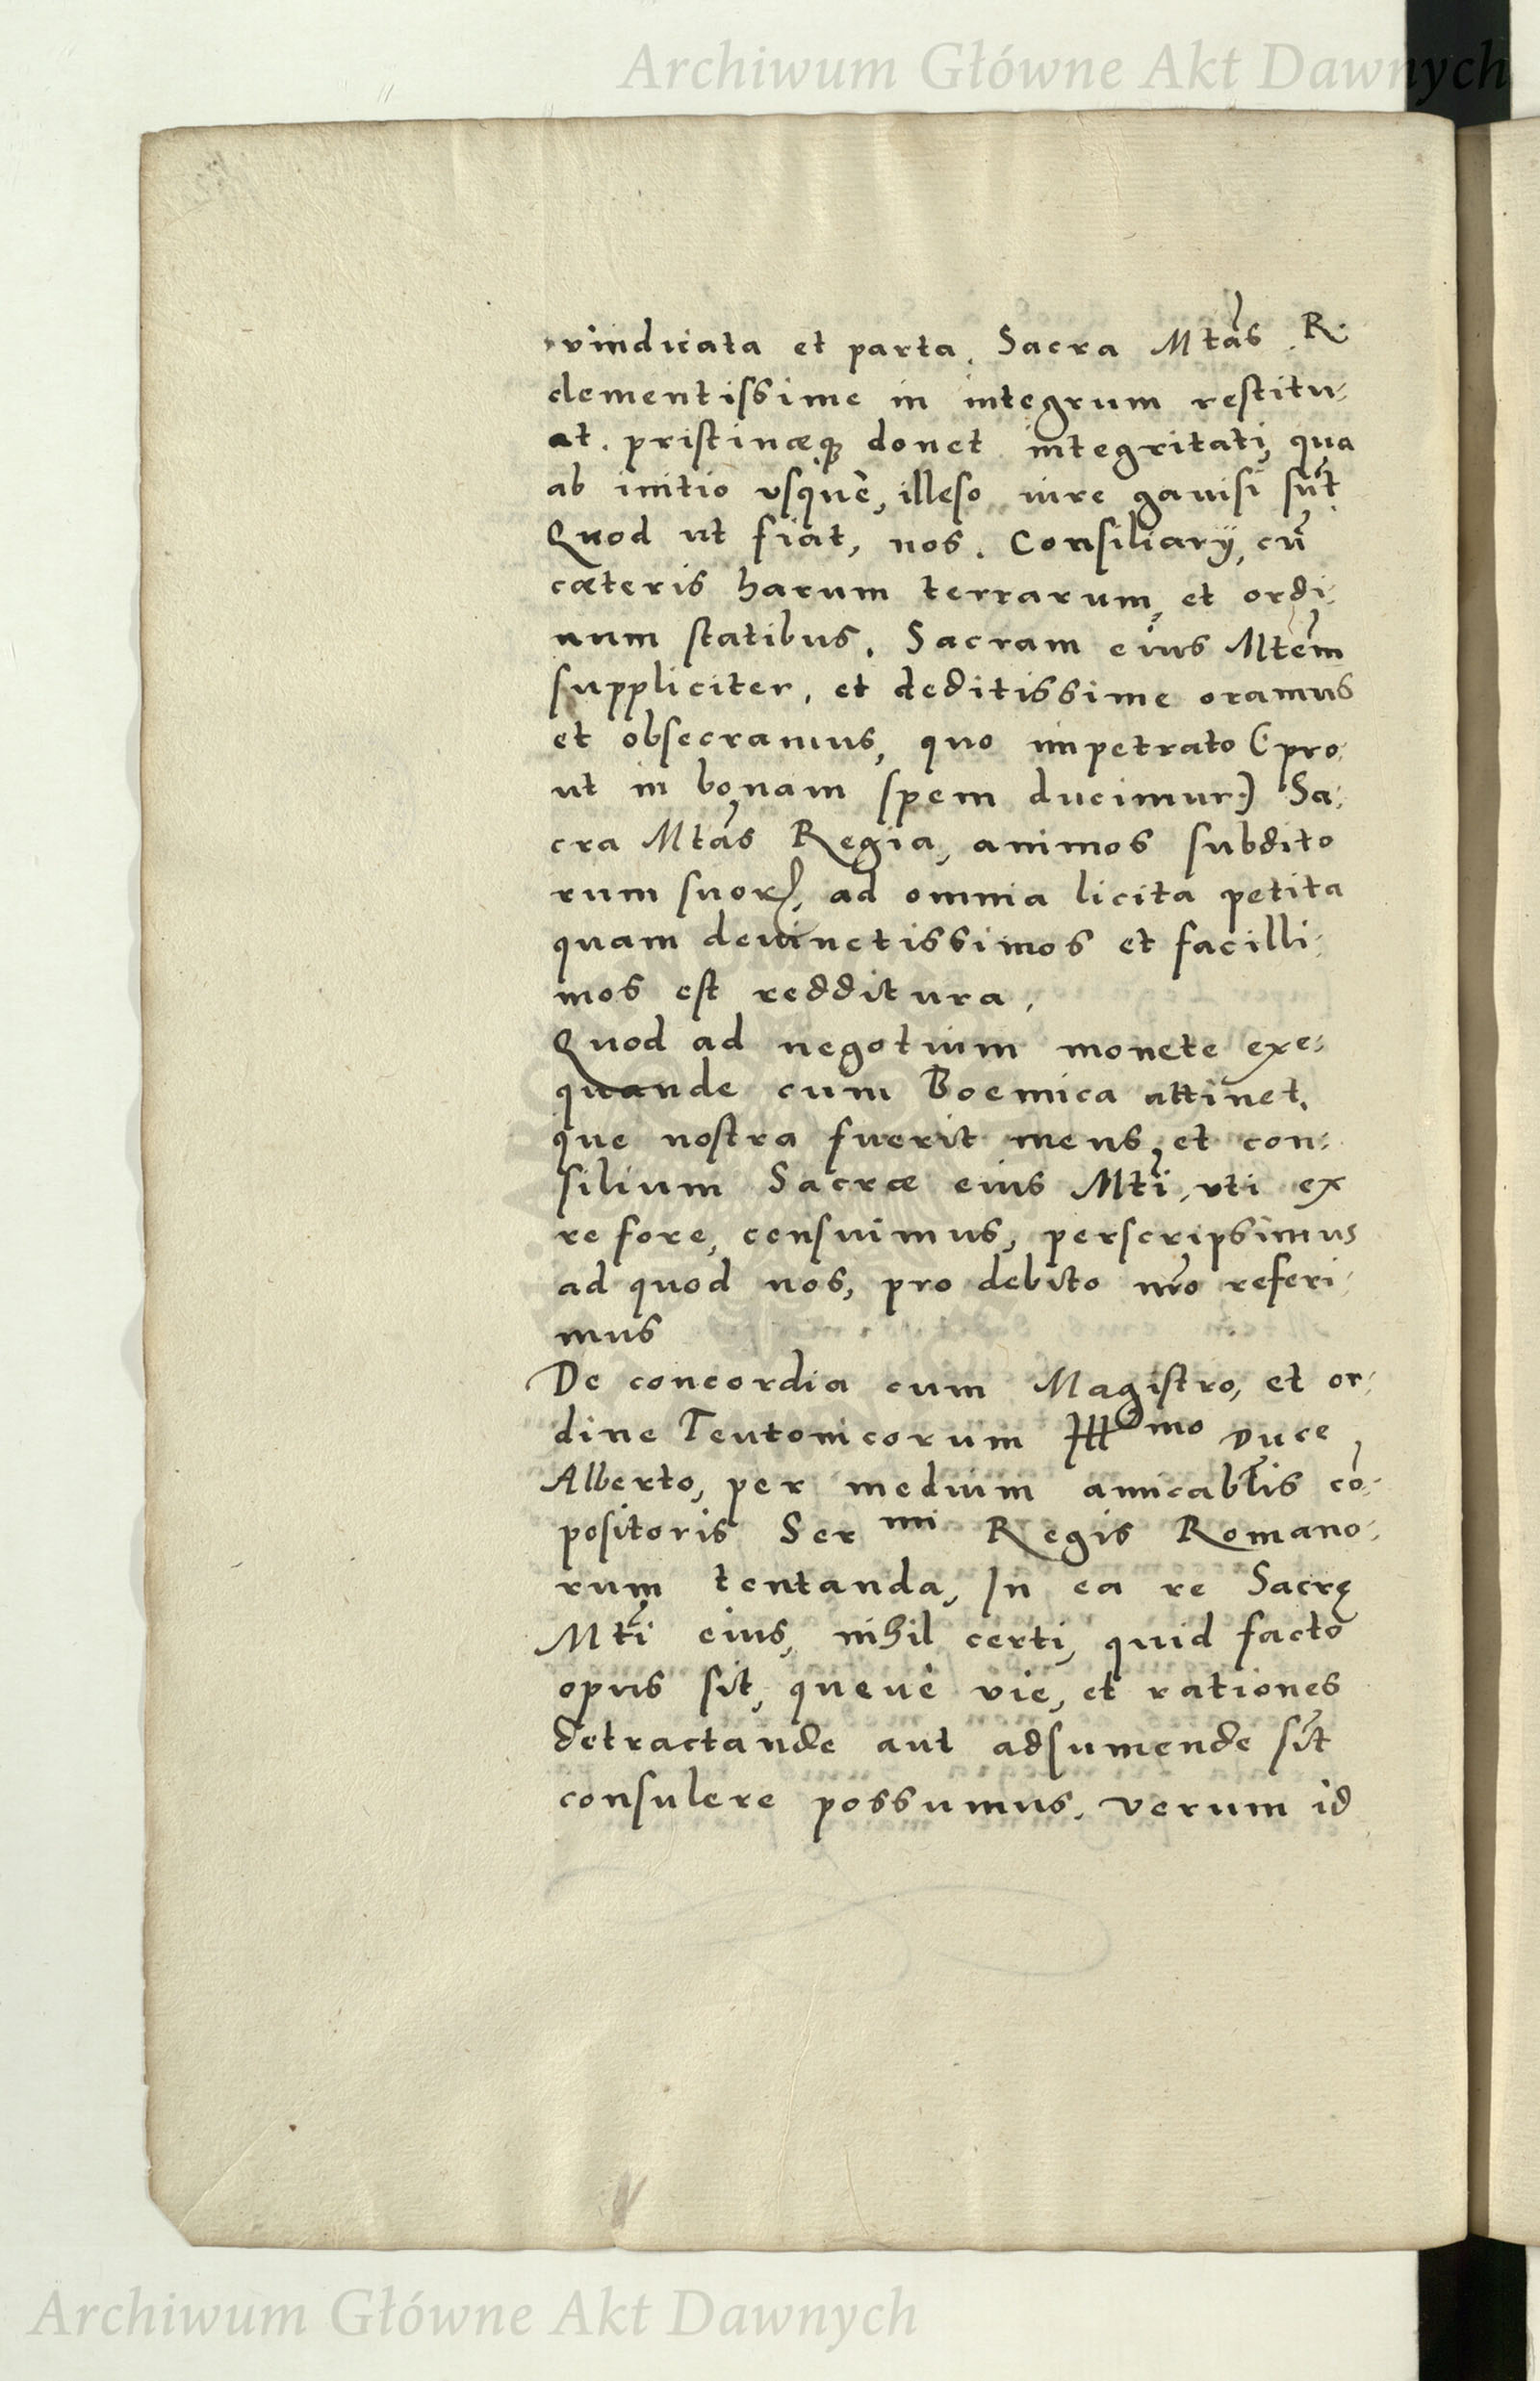 Archiwum Główne Akt Dawnych
vindicata et parta. Sacra Mtas R.
clementissime in integrum restitu-
at. pristinæq; donet integritati, qua
ab initio vsquè, illeso iure gauisi sūt.
Quod ut fiat, nos. Consiliarÿ, cū
cæteris harum terrarum, et ordi-
num statibus. Sacram eius Mtem
suppliciter, et deditissime oramus
et obsecramus, quo impetrato (pro-
ut in bonam spem ducimur) Sa-
cra Mtas Regia, animos subdito
rum suorꝝ, ad omnia licita petita
quam devinctissimos et facilli-
mos est redditura.
Quod ad negotium monete exe-
quande cum Boemica attinet,
que nostra fuerit mens, et con-
silium Sacræ eius Mti, vti ex
re fore, censuimus, perscripsimus
ad quod nos, pro debito nro referi-
mus
De concordia cum Magistro, et or-
dine Teutonicorum Illmo Duce
Alberto, per medium amicabilis cō-
positoris Sermi Regis Romano-
rum tentanda, In ea re Sacrę
Mti eius, nihil certi, quid facto
opus sit, queuè vie, et rationes
detractande aut adsumende sīt
consulere possumus. Verum id
Archiwum Główne Akt Dawnych